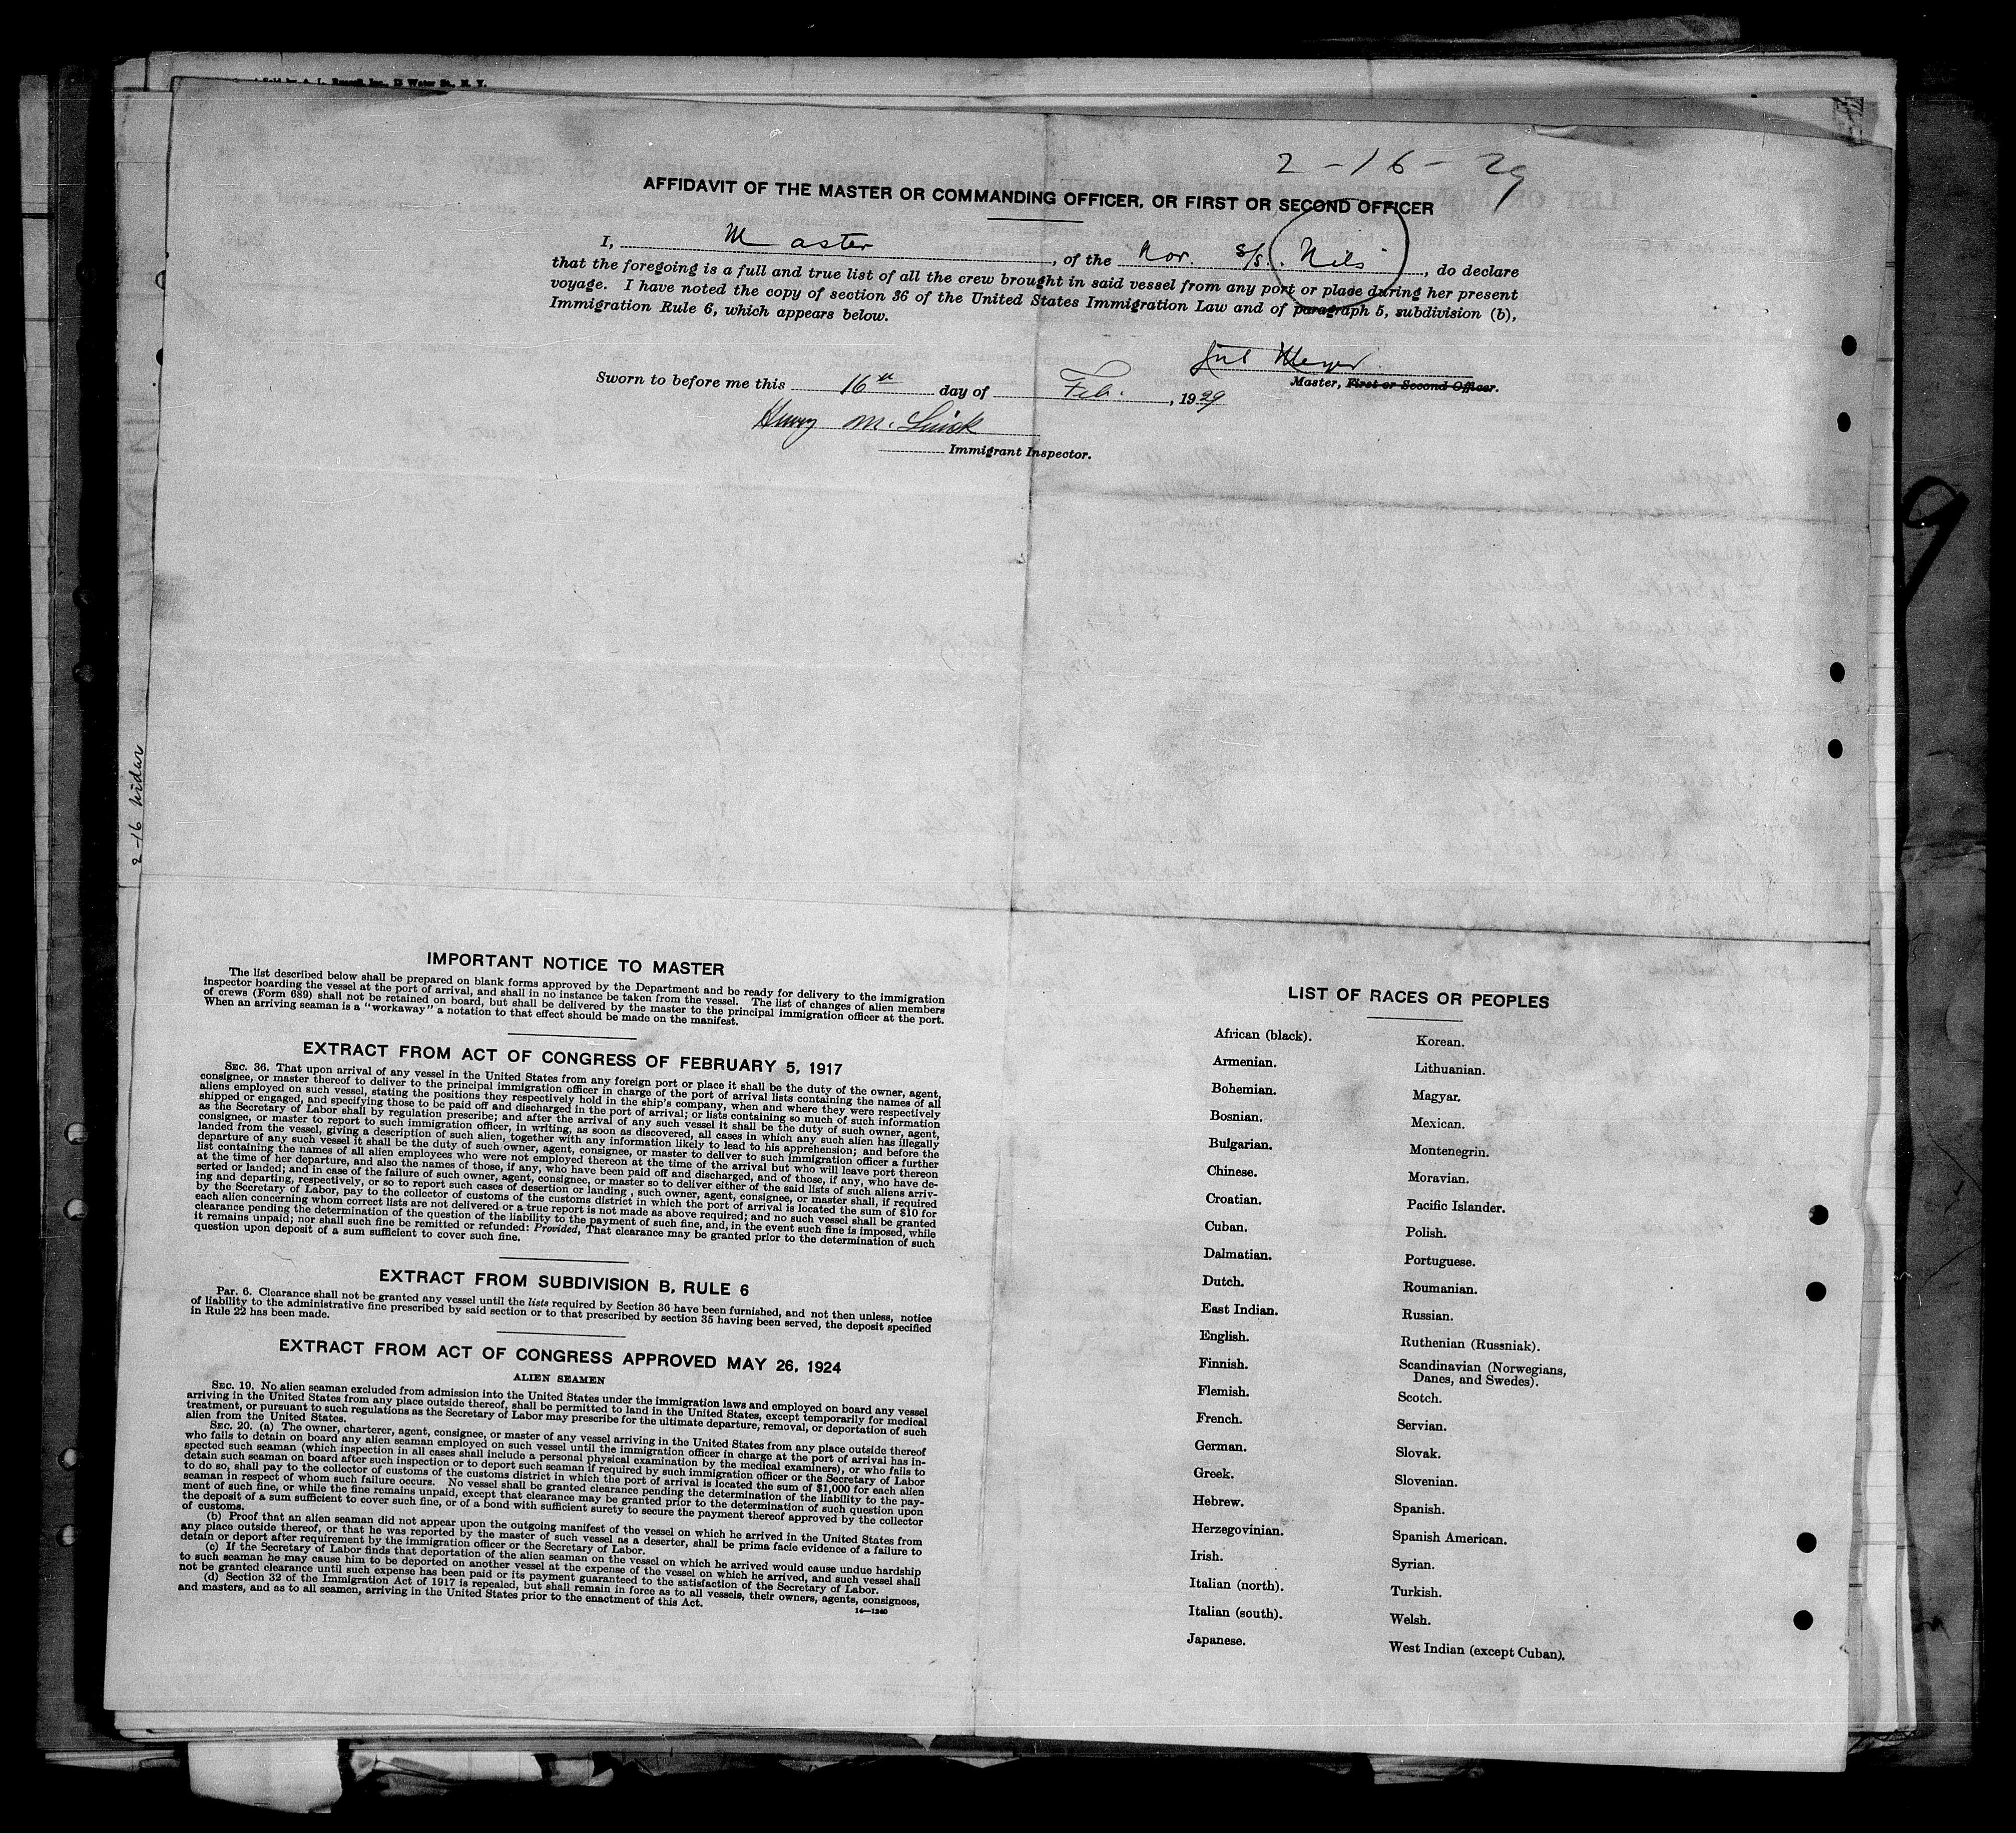 2-16-29
AFFIDAVIT OF THE MASTER OR COMMANDING OFFICER, OR FIRST OR SECOND OFFICER
I, Master, of the Nor. S/S. Nils, do declare
that the foregoing is a full and true list of all the crew brought in said vessel from any port or place during her present
voyage. I have noted the copy of section 36 of the United States Immigration Law and of paragraph 5, subdivision (b),
Immigration Rule 6, which appears below.
Meyer
Master, First or Second Officer.
Sworn to before me this 16th day of Feb., 1929
Henry M.
Immigrant Inspector.
9
2-16
IMPORTANT NOTICE TO MASTER
The list described below shall be prepared on blank forms approved by the Department and be ready for delivery to the immigration
inspector boarding the vessel at the port of arrival, and shall in no instance be taken from the vessel. The list of changes of alien members
of crews (Form 689) shall not be retained on board, but shall be delivered by the master to the principal immigration officer at the port.
When an arriving seaman is a "workaway" a notation to that effect should be made on the manifest.
EXTRACT FROM ACT OF CONGRESS OF FEBRUARY 5, 1917
SEC. 36. That upon arrival of any vessel in the United States from any foreign port or place it shall be the duty of the owner, agent,
consignee, or master thereof to deliver to the principal immigration officer in charge of the port of arrival lists containing the names of all
aliens employed on such vessel, stating the positions they respectively hold in the ship's company, when and where they were respectively
shipped or engaged, and specifying those to be paid off and discharged in the port of arrival; or lists containing so much of such information
as the Secretary of Labor shall by regulation prescribe; and after the arrival of any such vessel it shall be the duty of such owner, agent,
consignee, or master to report to such immigration officer, in writing, as soon as discovered, all cases in which any such alien has illegally
landed from the vessel, giving a description of such alien, together with any information likely to lead to his apprehension; and before the
departure of any such vessel it shall be the duty of such owner, agent, consignee, or master to deliver to such immigration officer a further
list containing the names of all alien employees who were not employed thereon at the time of the arrival but who will leave port thereon
at the time of her departure, and also the names of those, if any, who have been paid off and discharged, and of those, if any, who have de-
serted or landed; and in case of the failure of such owner, agent, consignee, or master so to deliver either of the said lists of such aliens arriv-
ing and departing, respectively, or so to report such cases of desertion or landing , such owner, agent, consignee, or master shall, if required
by the Secretary of Labor, pay to the collector of customs of the customs district in which the port of arrival is located the sum of $10 for
each alien concerning whom correct lists are not delivered or a true report is not made as above required; and no such vessel shall be granted
clearance pending the determination of the question of the liability to the payment of such fine, and, in the event such fine is imposed, while
it remains unpaid; nor shall such fine be remitted or refunded: Provided, That clearance may be granted prior to the determination of such
question upon deposit of a sum sufficient to cover such fine.
EXTRACT FROM SUBDIVISION B, RULE 6
Par. 6. Clearance shall not be granted any vessel until the lists required by Section 36 have been furnished, and not then unless, notice
of liability to the administrative fine prescribed by said section or to that prescribed by section 35 having been served, the deposit specified
in Rule 22 has been made.
EXTRACT FROM ACT OF CONGRESS APPROVED MAY 26, 1924
ALIEN SEAMEN
SEC. 19. No alien seaman excluded from admission into the United States under the immigration laws and employed on board any vessel
arriving in the United States from any place outside thereof, shall be permitted to land in the United States, except temporarily for medical
treatment, or pursuant to such regulations as the Secretary of Labor may prescribe for the ultimate departure, removal, or deportation of such
alien from the United States.
SEC. 20. (a) The owner, charterer, agent, consignee, or master of any vessel arriving in the United States from any place outside thereof
who fails to detain on board any alien seaman employed on such vessel until the immigration officer in charge at the port of arrival has in-
spected such seaman (which inspection in all cases shall include a personal physical examination by the medical examiners), or who fails to
detain such seaman on board after such inspection or to deport such seaman if required by such immigration officer or the Secretary of Labor
to do so, shall pay to the collector of customs of the customs district in which the port of arrival is located the sum of $1,000 for each alien
seaman in respect of whom such failure occurs. No vessel shall be granted clearance pending the determination of the liability to the pay-
ment of such fine, or while the fine remains unpaid, except that clearance may be granted prior to the determination of such question upon
the deposit of a sum sufficient to cover such fine, or of a bond with sufficient surety to secure the payment thereof approved by the collector
of customs.
(b) Proof that an alien seaman did not appear upon the outgoing manifest of the vessel on which he arrived in the United States from
any place outside thereof, or that he was reported by the master of such vessel as a deserter, shall be prima facie evidence of a failure to
detain or deport after requirement by the immigration officer or the Secretary of Labor.
(c) If the Secretary of Labor finds that deportation of the alien seaman on the vessel on which he arrived would cause undue hardship
to such seaman he may cause him to be deported on another vessel at the expense of the vessel on which he arrived, and such vessel shall
not be granted clearance until such expense has been paid or its payment guaranteed to the satisfaction of the Secretary of Labor.
(d) Section 32 of the Immigration Act of 1917 is repealed, but shall remain in force as to all vessels, their owners, agents, consignees,
and masters, and as to all seamen, arriving in the United States prior to the enactment of this Act.
14—1240
LIST OF RACES OR PEOPLES
African (black).
Armenian.
Bohemian.
Bosnian.
Bulgarian.
Chinese.
Croatian.
Cuban.
Dalmatian.
Dutch.
East Indian.
English.
Finnish.
Flemish.
French.
German.
Greek.
Hebrew.
Herzegovinian.
Irish.
Italian (north).
Italian (south).
Japanese.
Korean.
Lithuanian.
Magyar.
Mexican.
Montenegrin.
Moravian.
Pacific Islander.
Polish.
Portuguese.
Roumanian.
Russian.
Ruthenian (Russniak).
Scandinavian (Norwegians,
Danes, and Swedes).
Scotch.
Servian.
Slovak.
Slovenian.
Spanish.
Spanish American.
Syrian.
Turkish.
Welsh.
West Indian (except Cuban).